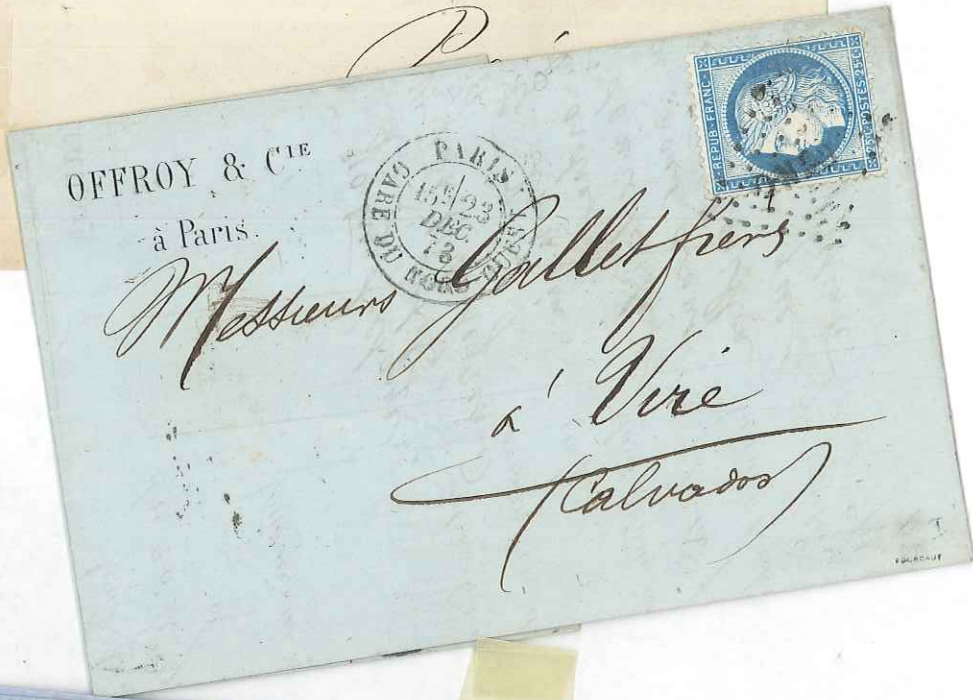 OFFROY & CIE
à Paris.
PARIS
GARE DU NORD
23
DÉC.
REPUB. FRANC.
POSTES
25 C
Messieurs Gallet frères
à Vire
(Calvados)